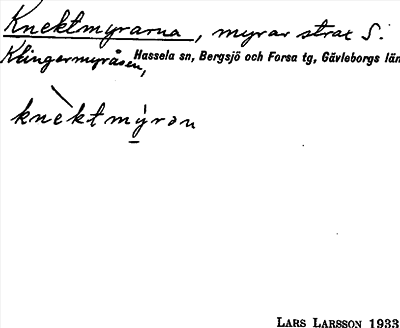 Knektmyrarna, myrar strax S.
Klingermyråsen, Hassela sn, Bergsjö och Forsa tg, Gävleborgs län
knèktmýrən
LARS LARSSON 1933